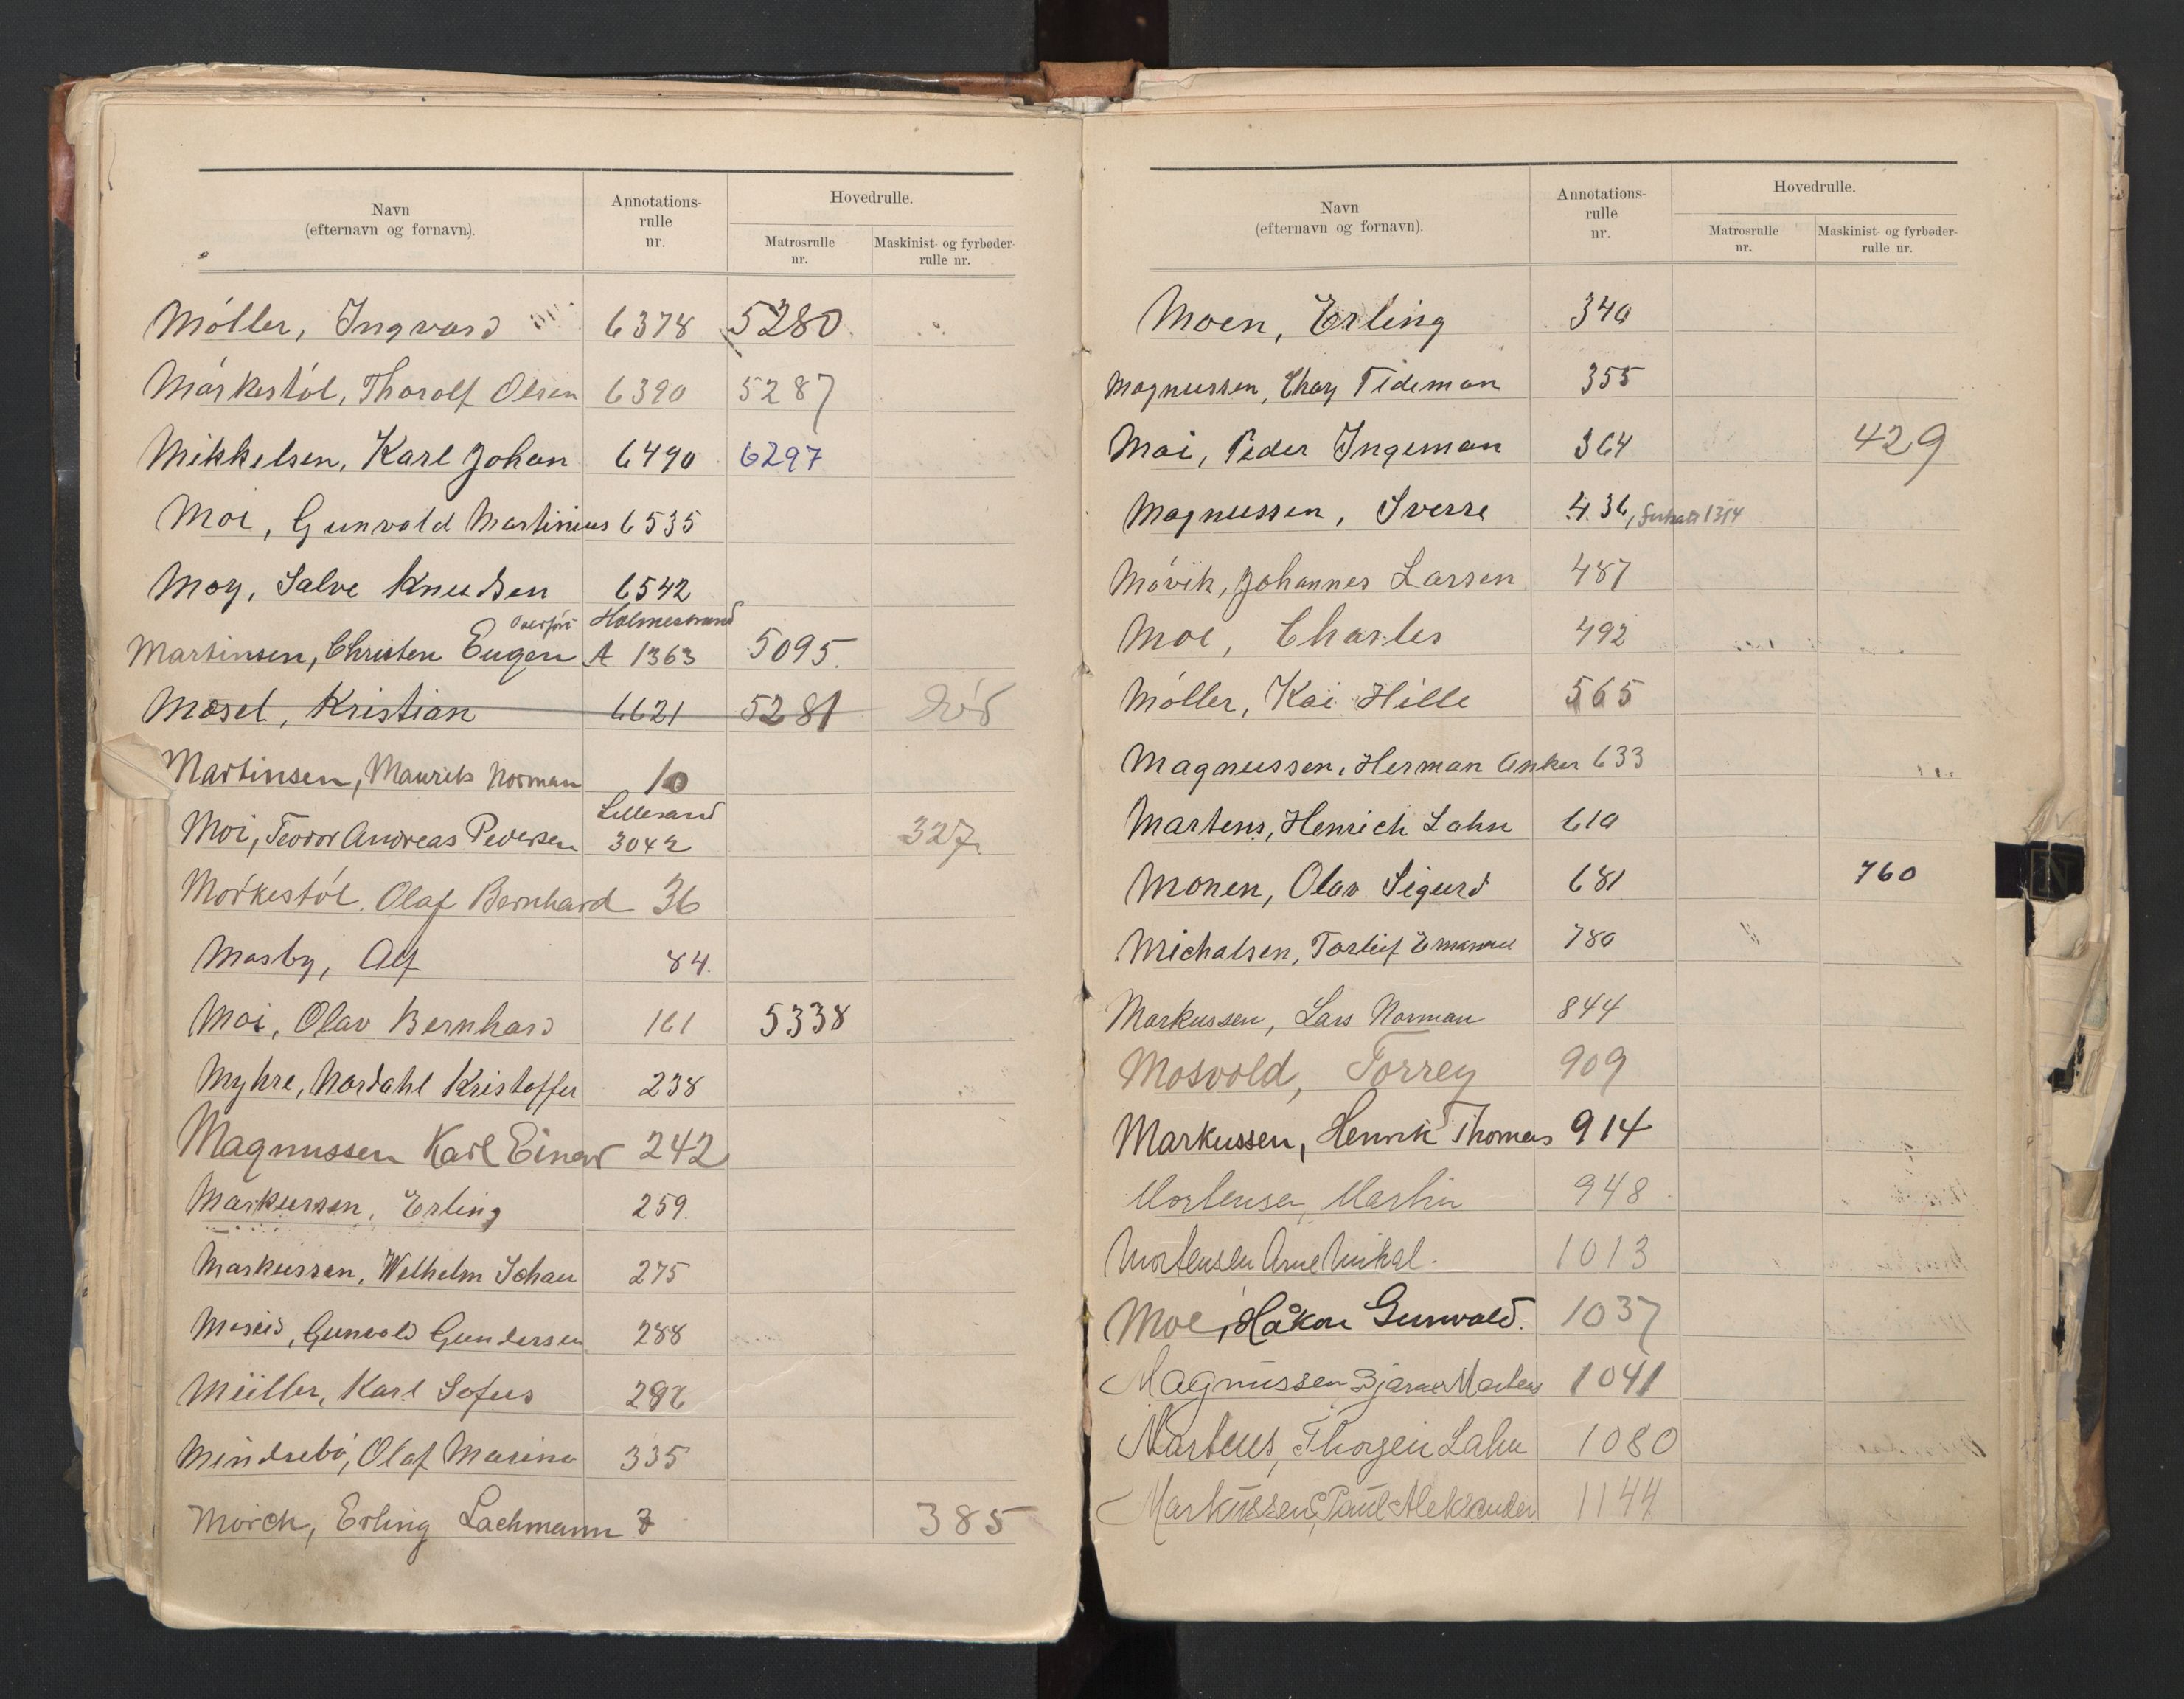 Navn
(efternavn og fornavn).
Annotations-
rulle
nr.
Hovedrulle.
Matrosrulle
nr.
Maskinist- og fyrbøder-
rulle nr.
Möller, Ingvard 6378 5280
Mörkestöl, Thorolf Olsen 6390 5287
Mikkelsen, Karl Johan 6490 6297
Moi, Gunvald Martinius 6535
Moy, Salve Knudsen 6542
Overført Holmestrand
Martinsen, Christen Eugen A 1363 5095
Mosel, Kristian 6621 5281 Död
Martinsen, Maurits Norman 10
Lillesand
Moi, Teodor Andreas Pedersen 3042 327
Mörkestöl, Olaf Bernhard 36
Mosby, Alf 84
Moi, Olav Bernhard 161 5338
Myhre, Nordahl Kristoffer 238
Magnussen Karl Einar 242
Markussen, Erling 259
Markussen, Wilhelm Schau 275
Moseid, Gunvald Gundersen 288
Müller, Karl Sofus
Mindrebö, Olaf Marino 335
Mörch, Erling Lachmann 385
Navn
(efternavn og fornavn).
Annotations-
rulle
nr.
Hovedrulle.
Matrosrulle
nr.
Maskinist- og fyrbøder-
rulle nr.
Moen, Erling 340
Magnussen, Tideman 355
Moi, Peder Ingeman 364 429
Magnussen, Sverre 436, 1314
Mövik, Johannes Larsen 487
Moe, Charles 492
Möller, Kai Hille 565
Magnussen, Herman Anker 633
Martens, Henrich Lahn 610
Monen, Olav Sigurd 681 760
Michalsen, Torleif Emanuel 780
Markussen, Lars Norman 844
Mosvold, Torrey 909
Markussen, Henrik Thomas 914
Mortensen, Martin 948
Mortensen Arne Mikal. 1013
Moe, Håkon Gunvald. 1037
Magnussen Bjarne Martens 1041
Martens, Thorgen Lahn 1080
Markussen, Paul Aleksander 1144